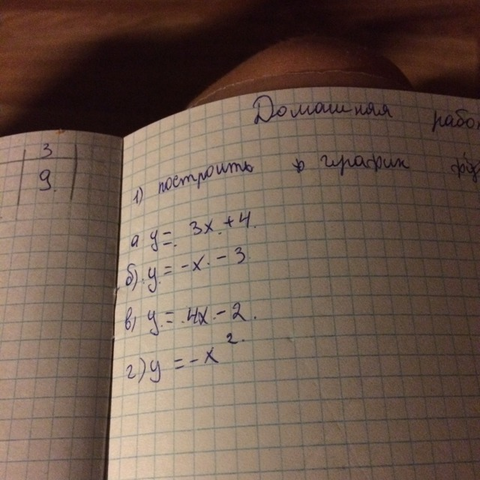 3
9
Домашняя рабо
1) построить график фу
а y = 3x + 4
б) y = -x - 3
в) y = 4x - 2
г) y = -x².